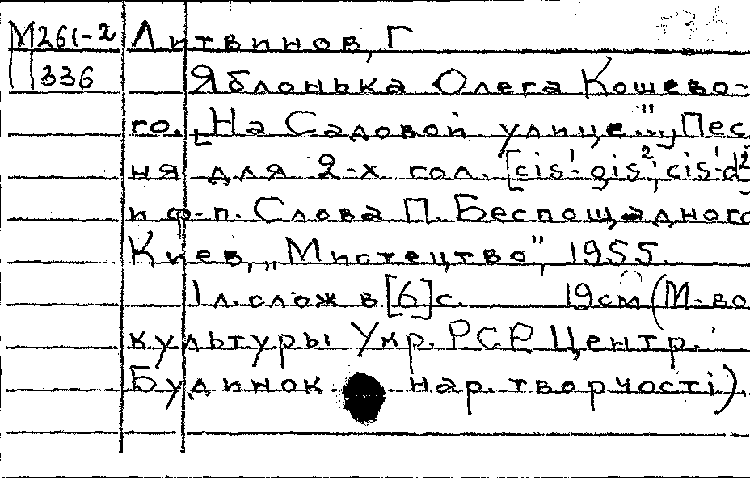 М261-2 Литвинов, Г
336 Яблонька Олега Кошево-
го. [„На Садовой улице..."] Пес
ня для 2-х гол. [cis¹-gis²; cis¹-d²
и ф-п. Слова П. Беспощадного
Киев, „Мистецтво", 1955.
1 л. слож в [6] с. 19см (М-во
культуры Укр. РСР Центр.
Будинок нар. творчості).